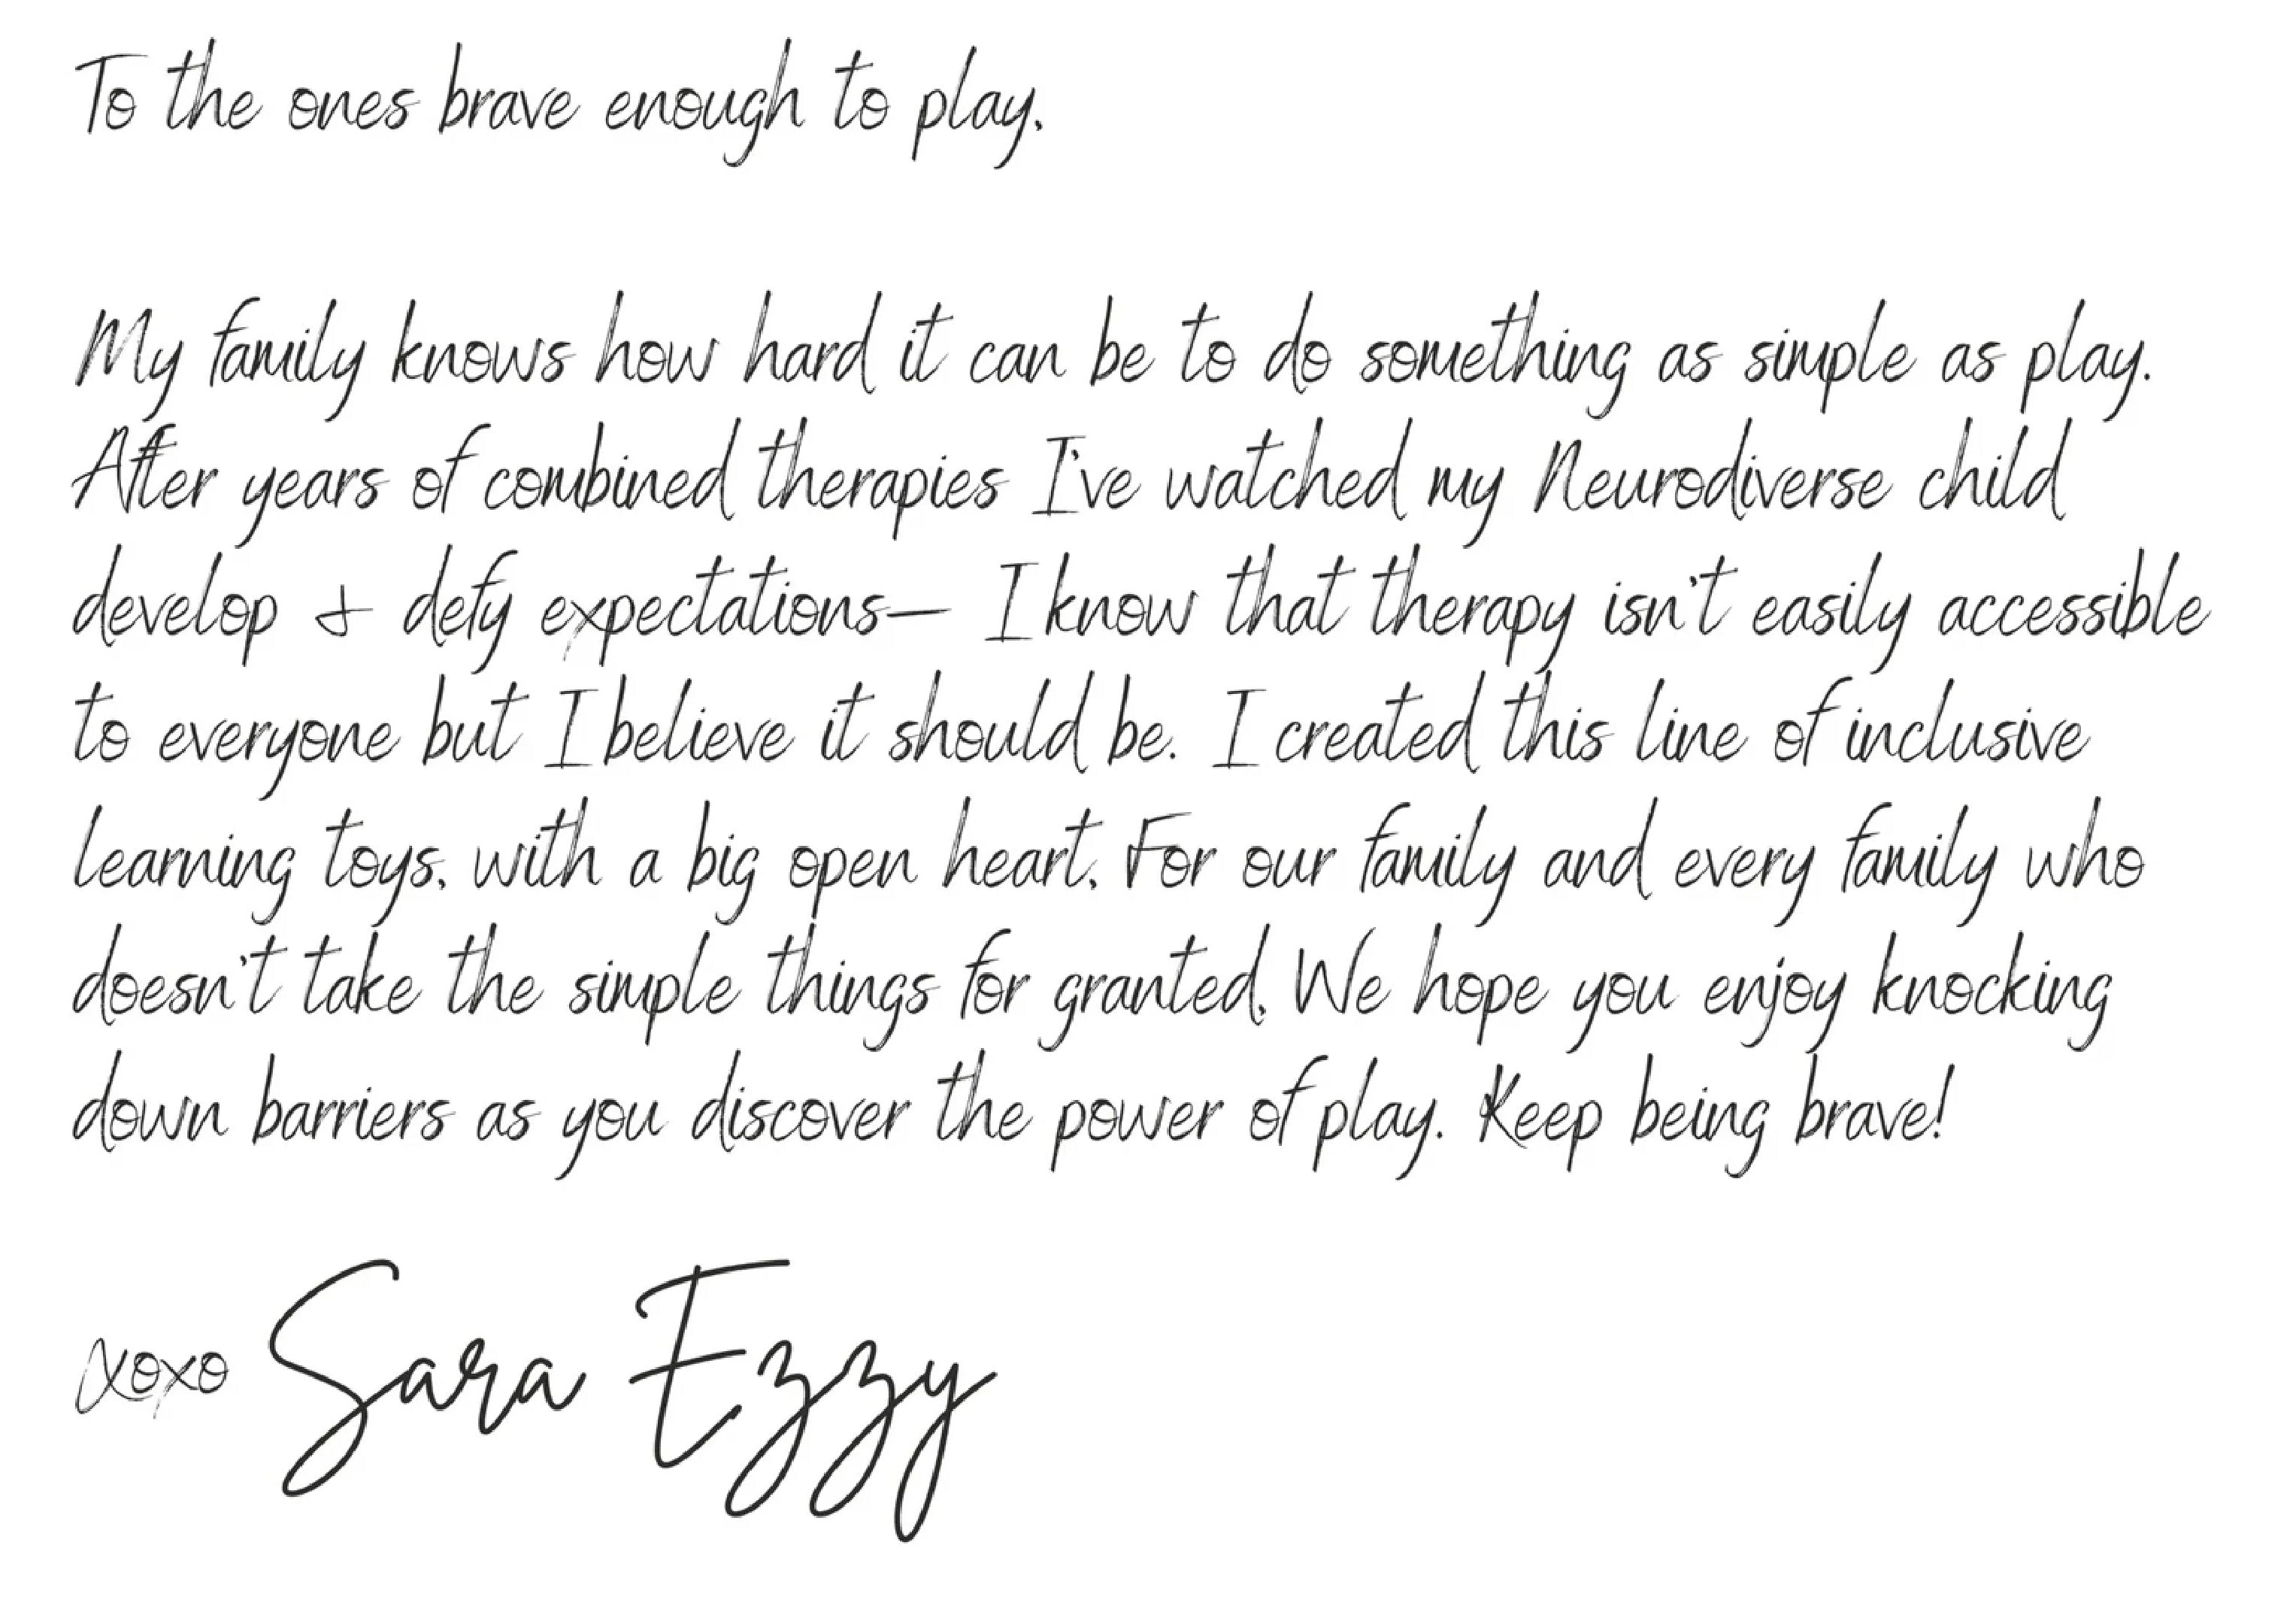 To the ones brave enough to play,
My family knows how hard it can be to do something as simple as play.
After years of combined therapies I've watched my Neurodiverse child
develop & defy expectations— I know that therapy isn't easily accessible
to everyone but I believe it should be. I created this line of inclusive
learning toys, with a big open heart, For our family and every family who
doesn't take the simple things for granted, We hope you enjoy knocking
down barriers as you discover the power of play. Keep being brave!
xoxo Sara Ezzy